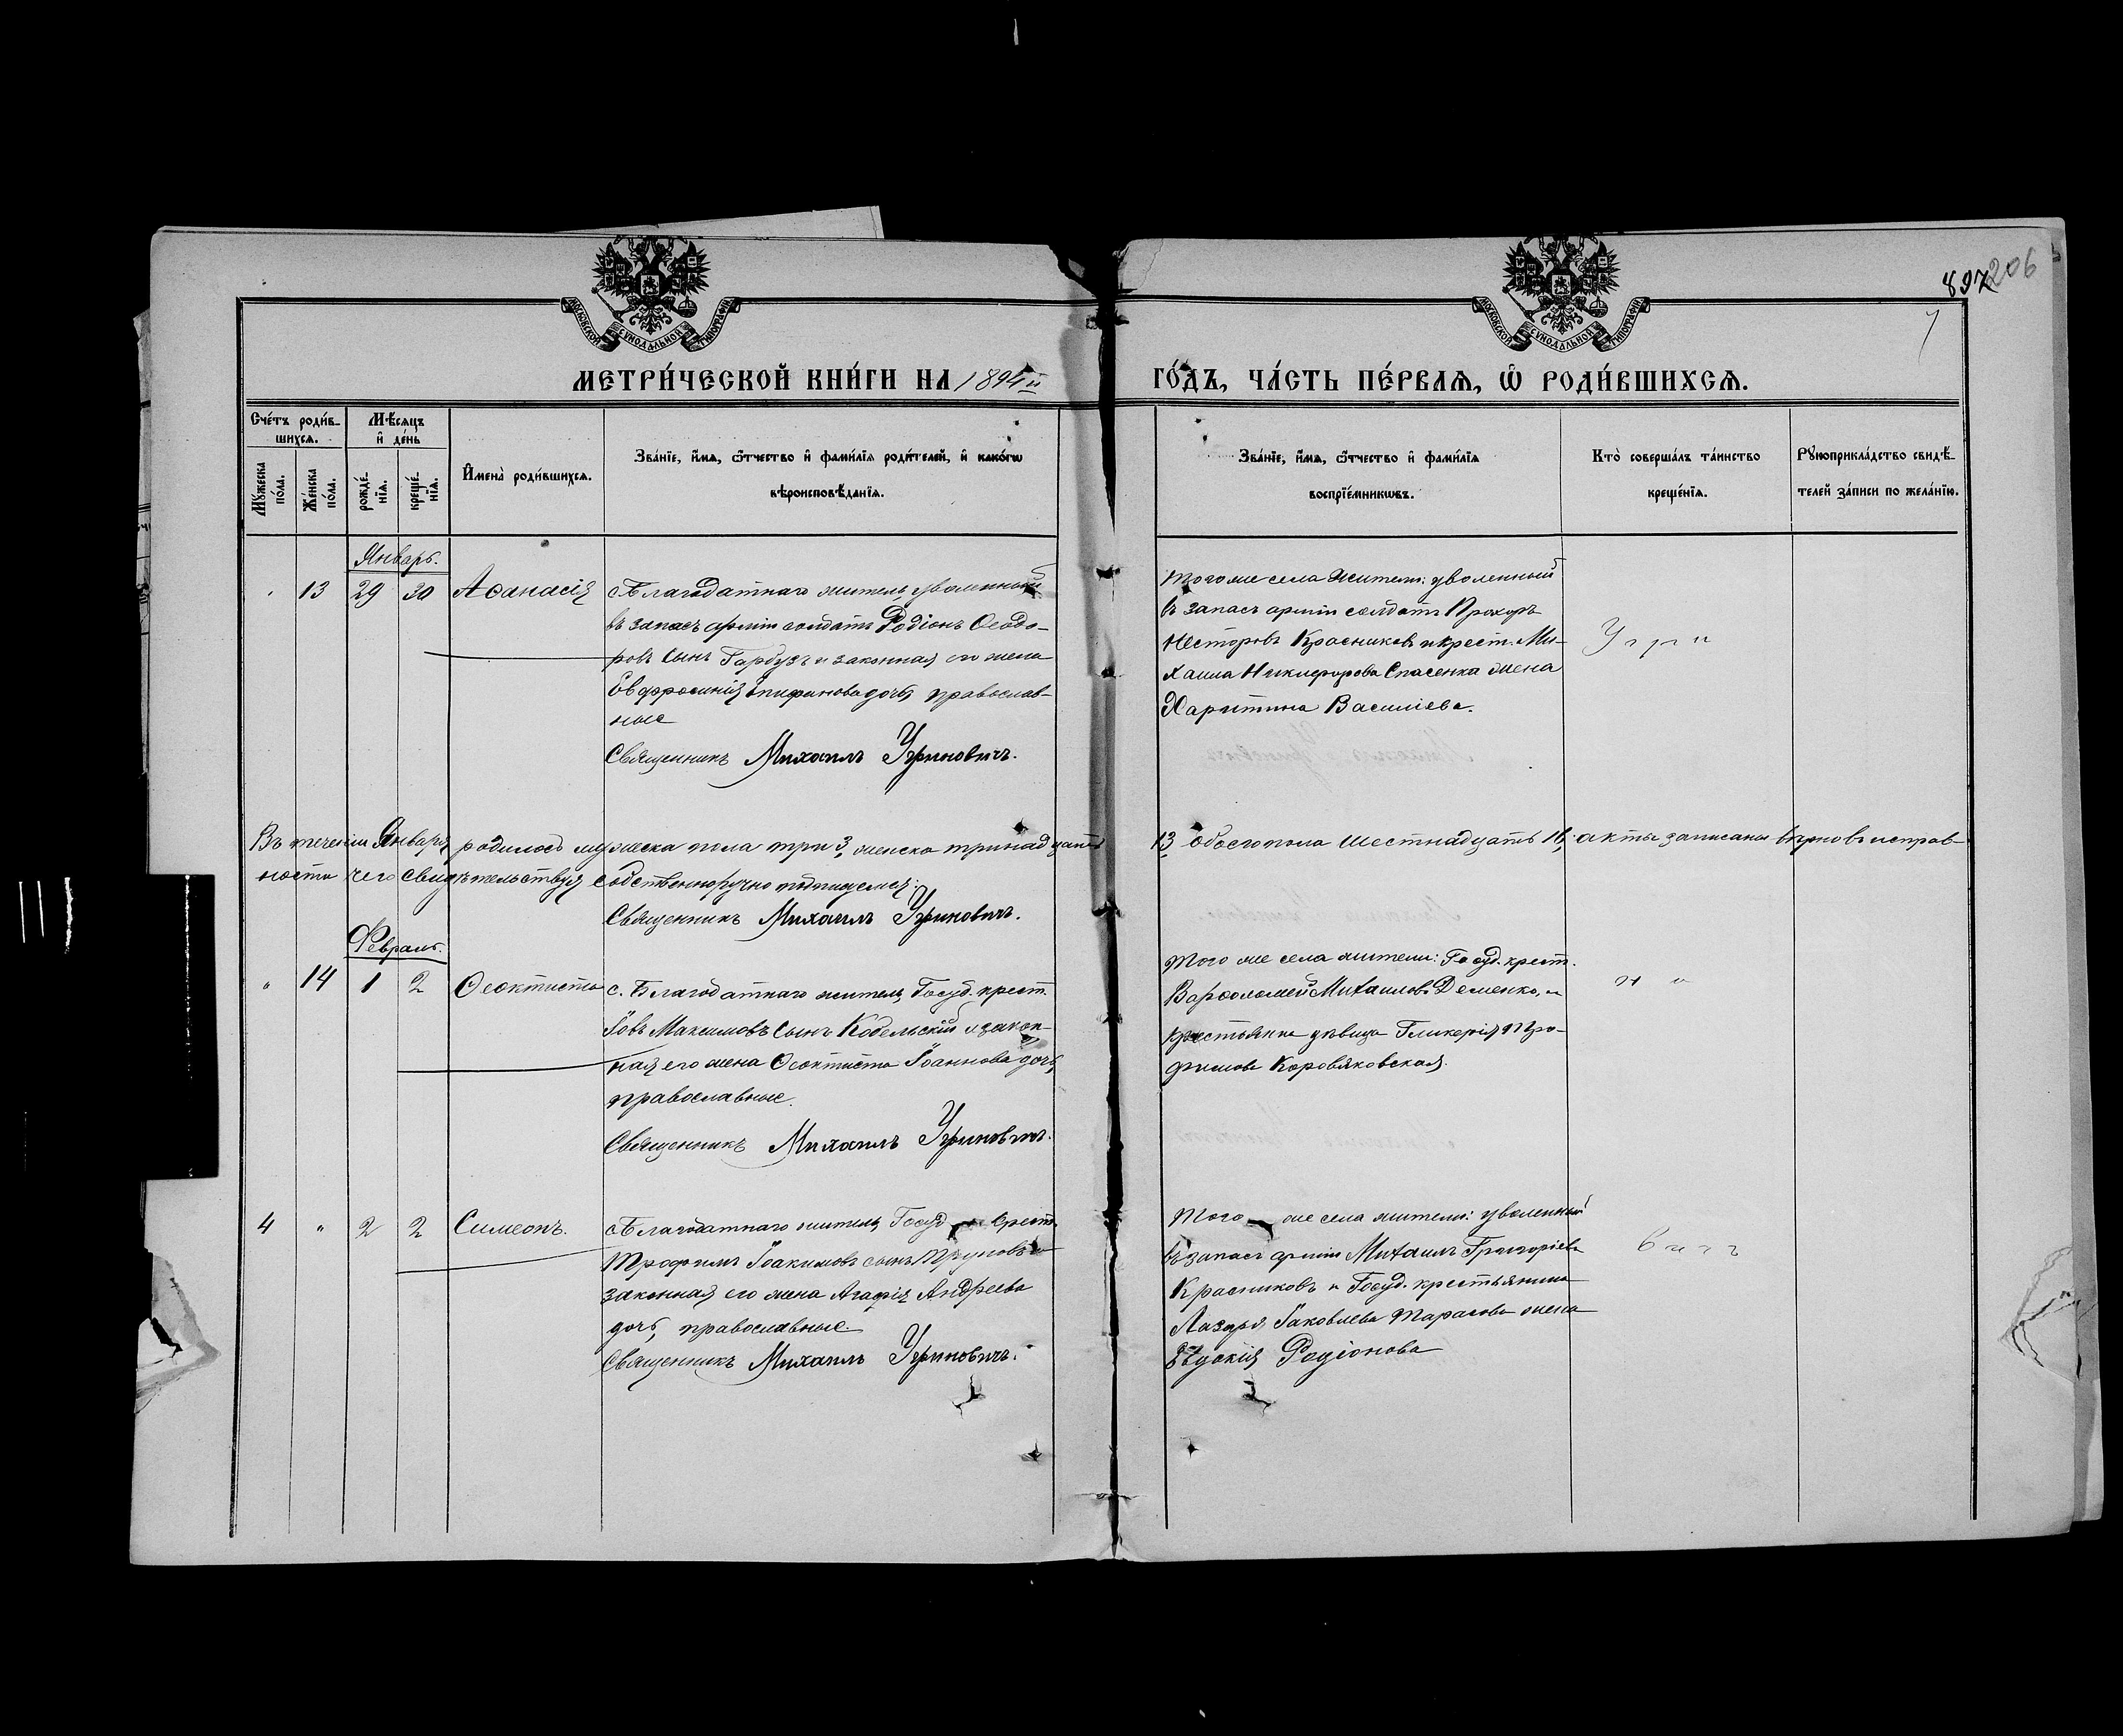 897 206
7
МОСКОВСКОЙ СѴНОДАЛЬНОЙ ТИПОГРАФІИ
МОСКОВСКОЙ СѴНОДАЛЬНОЙ ТИПОГРАФІИ
МЕТРИ́ЧЕСКОЙ КНИ́ГИ НА 1894й ГО́ДЪ, ЧА́СТЬ ПЕ́РВАѦ, Ѡ҆ РОДИ́ВШИХСѦ.
Сче́тъ роди́в-
шихсѧ.
Мѣ́сѧцъ
и҆ де́нь
Мꙋ́жеска
по́ла.
Же́нска
по́ла.
рожде́-
нїѧ.
креще́-
нїѧ.
И҆мена̀ роди́вшихсѧ.
Зва́нїе, и҆́мѧ, ѻ҆́тчество и҆ фами́лїѧ роди́телей, и҆ како́гѡ
вѣроисповѣ́данїѧ.
Зва́нїе, и҆́мѧ, ѻ҆́тчество и҆ фами́лїѧ
воспрїе́мникѡвъ.
Кто̀ соверша́лъ та́инство
креще́нїѧ.
Рꙋкоприкла́дство свидѣ́-
телей за́писи по жела́нїю.
Январь.
" 13 29 30 Аѳанасія
с Благодатнаго житель, уволенный
въ запасъ арміи солдатъ Родіонъ Ѳеодо-
ровъ сынъ Гарбузъ и законная его жена
Евфросинія Епифанова дочь, православ-
ные
Священникъ Михаилъ Угриновичъ.
Тогоже села жители: уволенный
въ запасъ арміи солдатъ Прохоръ
Несторовъ Красниковъ и крест. Ми-
хаила Никифорова Спасенка жена
Харитина Васильева.
У г р и
Въ теченіи Января родилось мужеска пола три 3, женска тринадцать 13 обоего пола шестнадцать 16; акты записаны вѣрно въ исправ-
ности чего свидѣтельствуя собственноручно подписуемся:
Священникъ Михаилъ Угриновичъ.
Февраль.
" 14 1 2 Ѳеоктиста
с. Благодатнаго житель, Госуд. крест.
Іовъ Максимовъ сынъ Кобельскій и закон-
ная его жена Ѳеоктиста Іоаннова дочь,
православные.
Священникъ Михаилъ Угриновичъ.
Того же села жители: Госуд. крест.
Варѳоломей Михаиловъ Деменко, и
крестьянка дѣвица Гликерія Тро-
фимова Коровяковская.
н о
4 " 2 2 Симеонъ.
с Благодатнаго житель, Госуд. крест.
Трофимъ Іоакимовъ сынъ Труновъ и
законная его жена Агафія Андреева
дочь, православные
Священникъ Михаилъ Угриновичъ.
Того же села жители: уволенный
въ запасъ арміи Михаилъ Григоріевъ
Красниковъ и Госуд. крестьянина
Лазаря Іаковлева Тарасова жена
Евдокія Родіонова
в и ч ъ